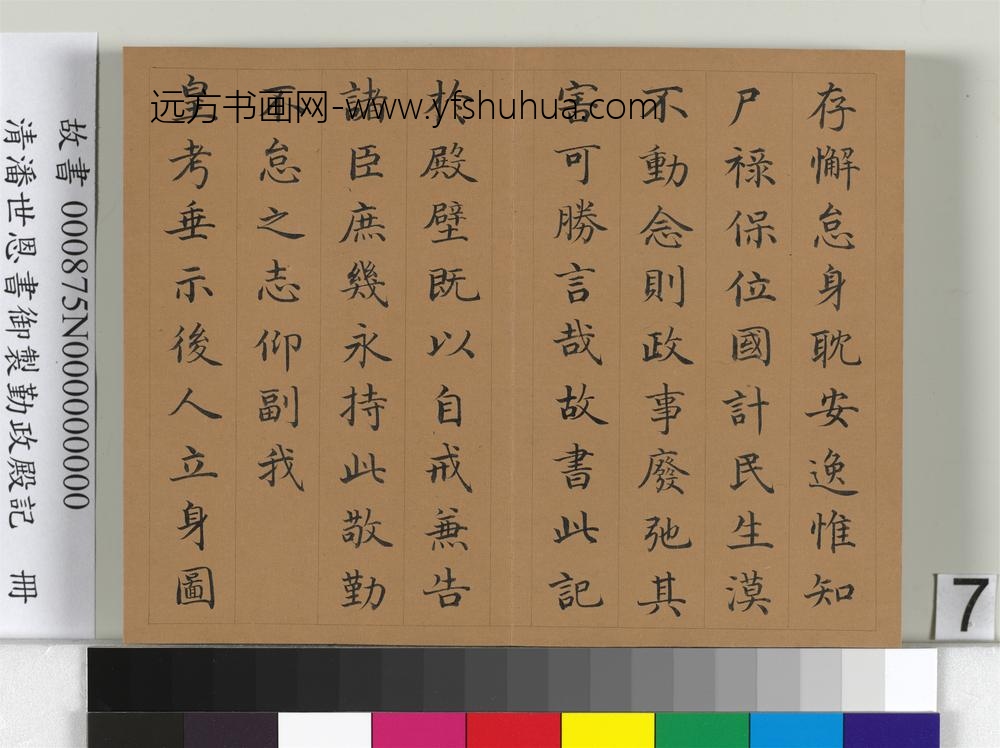 存懈怠身耽安逸惟知
尸祿保位國計民生漠
不動念則政事廢弛其
害可勝言哉故書此記
於殿壁既以自戒兼告
諸臣庶幾永持此敬勤
不怠之志仰副我
皇考垂示後人立身圖
远方书画网-www.yfshuhua.com
故書 000875N000000000
清潘世恩書御製勤政殿記 冊
7